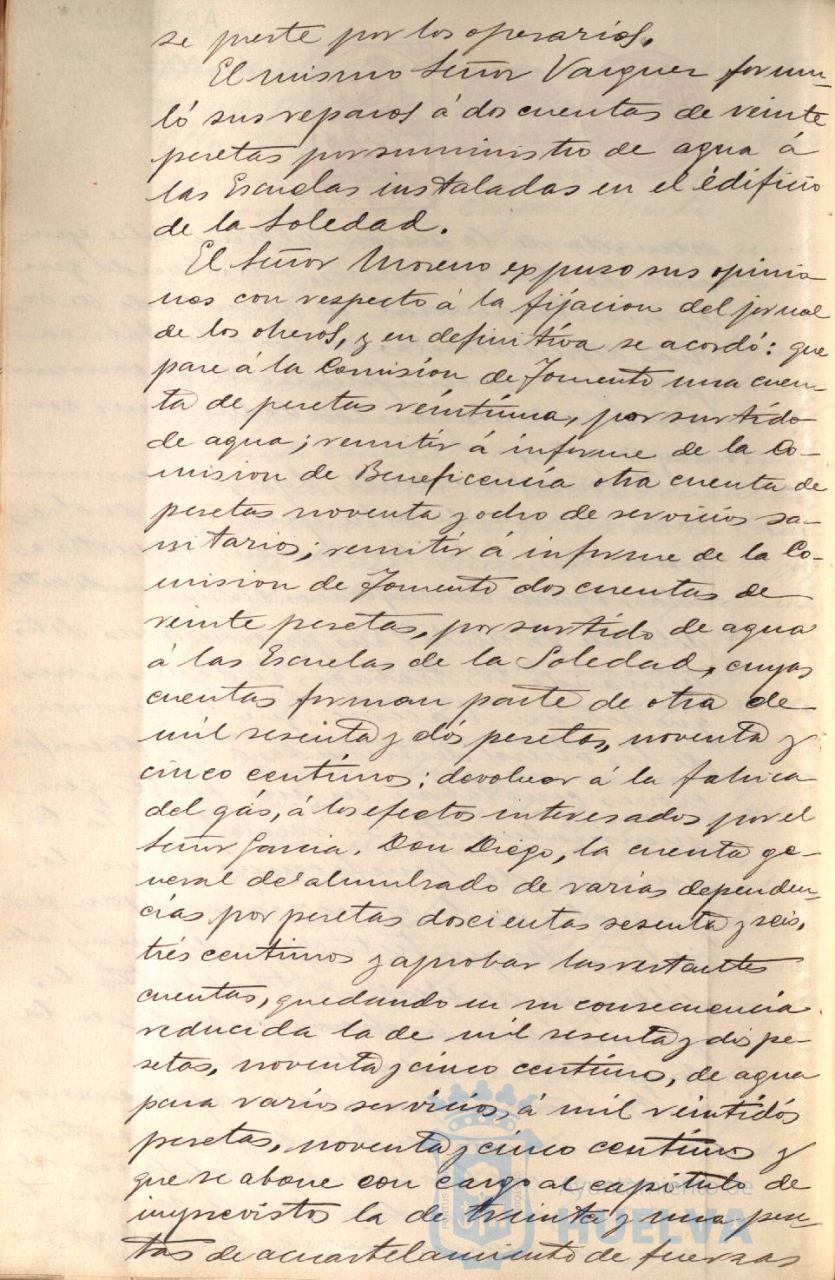 se preste por los operarios.
El mismo Señor Vazquez formu-
ló sus reparos á dos cuentas de veinte
pesetas por suministro de agua á
las Escuelas instaladas en el édificio
de la Soledad.
El Señor Moreno expuso sus opinio
nes con respecto á la fijacion del jornal
de los obreros, y en definitiva se acordó: que
pase á la Comisión de Fomento una cuen-
ta de pesetas veintiuna, por surtido
de agua; remitir á informe de la Co-
mision de Beneficencia otra cuenta de
pesetas noventa y ocho de servicios sa-
nitarios; remitir á informe de la Co-
mision de Fomento dos cuentas de
veinte pesetas, por surtido de agua
á las Escuelas de la Soledad, cuyas
cuentas forman parte de otra de
mil sesenta y dós pesetas, noventa y
cinco centimos; devolver á la fabrica
del gás, á los efectos interesados por el
Señor Garcia, Don Diego, la cuenta ge-
neral del alumbrado de varias dependen-
cias por pesetas doscientas sesenta y seis,
trés centimos y aprobar las restantes
cuentas, quedando en su consecuencia
reducida la de mil sesenta y dós pe-
setas, noventa y cinco centimos, de agua
para varios servicios, á mil veintidós
pesetas, noventa y cinco centimos y
que se abone con cargo al capitulo de
imprevistos la de treinta y una pese-
tas de acuartelamiento de fuerzas
Ayuntamiento de
HUELVA